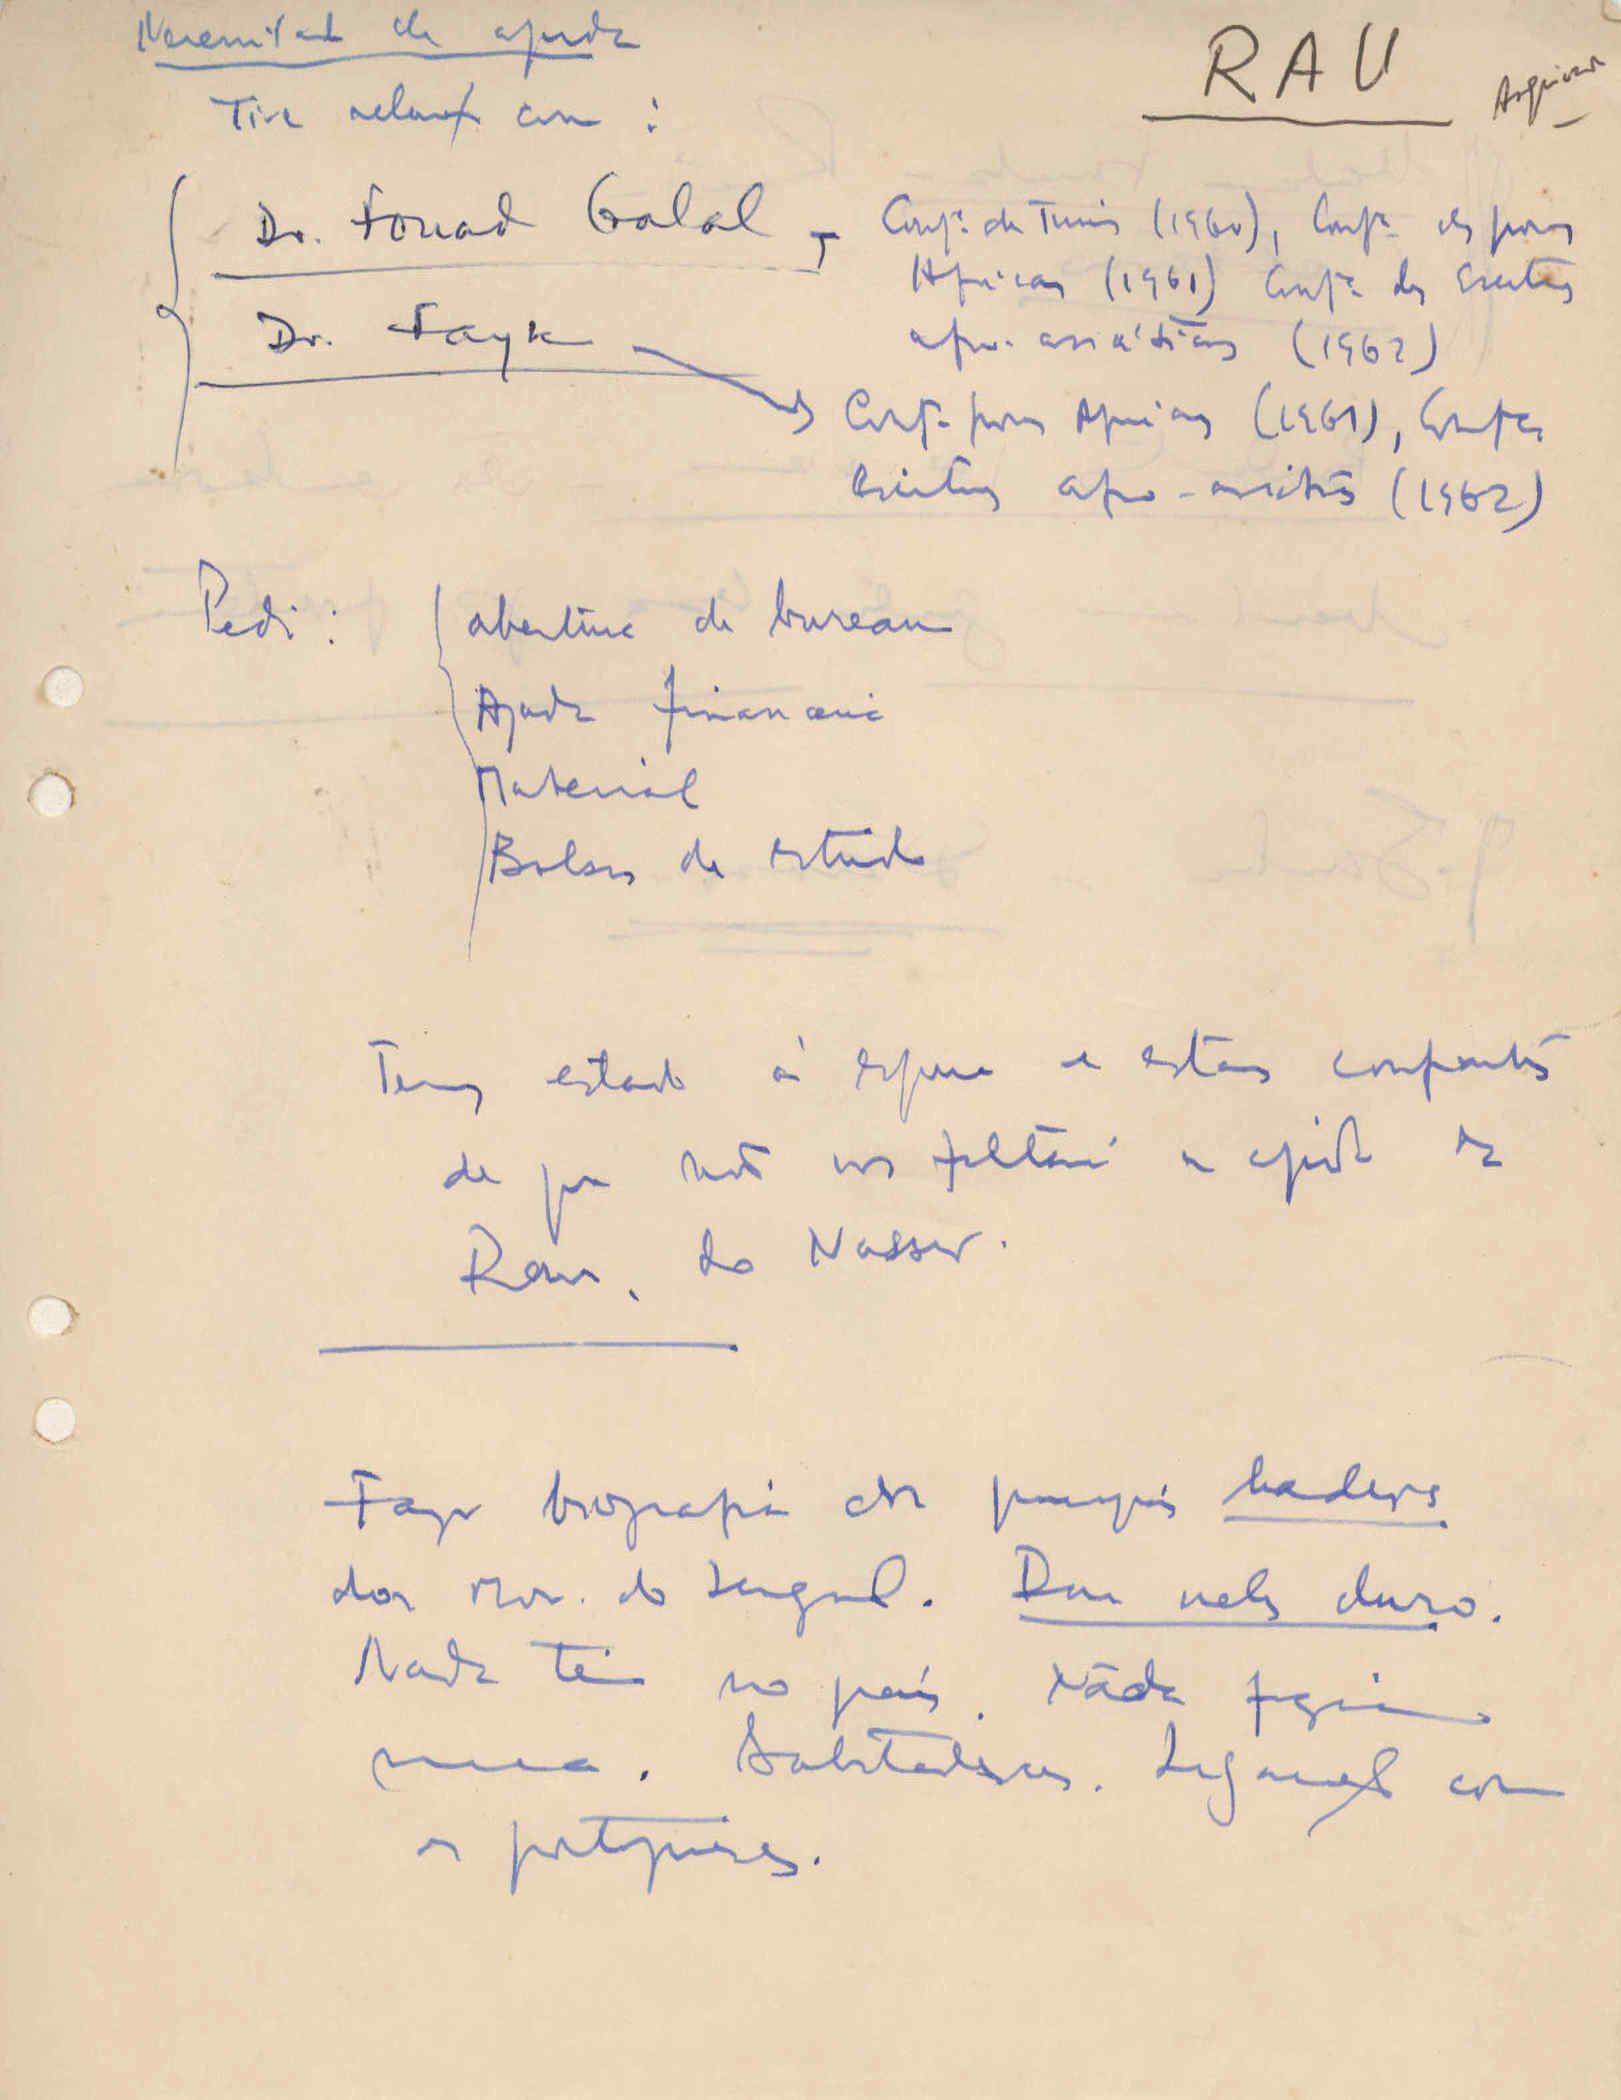 Necessidade de ajuda
RAU
Arquivar
Tive relações com:
Dr. Fouad Galal → Confª de Tunis (1960), Confª dos povos
Africanos (1961) Confª dos Escritores
afro-asiáticos (1962)
Dr. Fayk → Confª povos Africanos (1961), Confª
Escritores afro-asiáticos (1962)
Pedi:
abertura de bureau
Ajuda financeira
Material
Bolsas de estudo
Temos estado à espera e estamos confiantes
de que não nos faltará a ajuda da
Rau, do Nasser.
Fazer biografia dos principais leaders
dos Mov. do Senegal. Dar neles duro.
Nada têm no país. Nada fizeram
nunca. Sabotadores.
com
os portugueses.